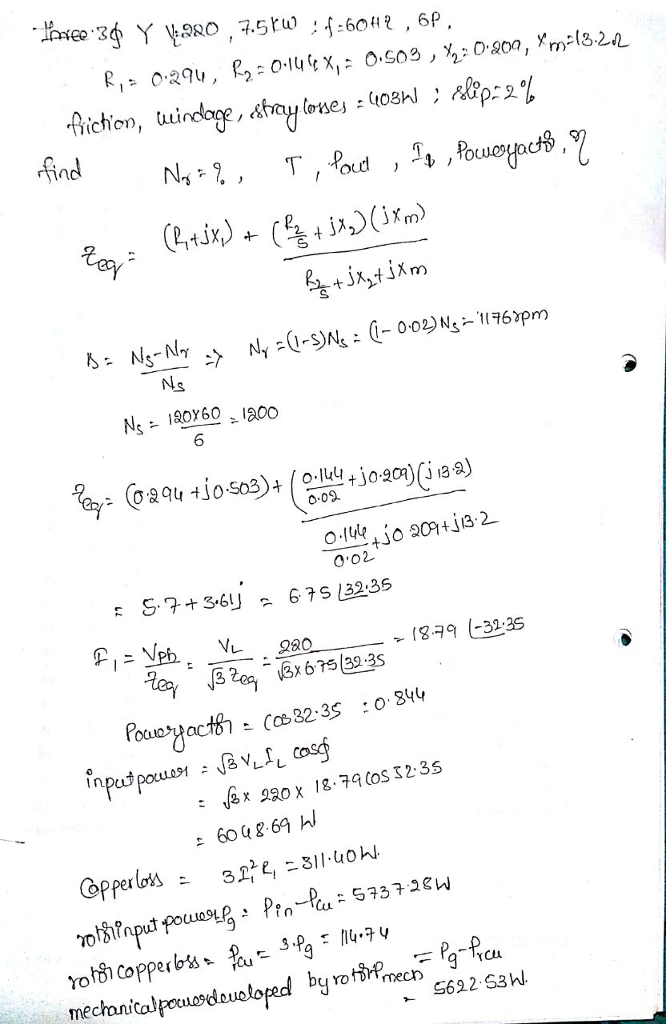 Three 3ϕ Y V=220, 7.5KW ; f=60HZ, 6P.
R₁= 0.294, R₂=0.144 X₁= 0.503, X₂=0.209, Xm=13.2Ω
friction, windage, stray losses = 403W ; slip=2%
find Nr=?, T, Pout, I, Poweryactor, η
Zeq = (R₁+jX₁) + (R₂/S + jX₂)(jXm) / R₂/S + jX₂+jXm
s = Ns-Nr/Ns => Nr =(1-S)Ns = (1-0.02)Ns = 1176rpm
Ns = 120X60/6 = 1200
Zeq = (0.294 +j0.503)+ (0.144/0.02 +j0.209)(j13.2) / 0.144/0.02 +j0 209+j13.2
= 5.7+3.61j = 6.75∠32.35
I₁ = Vph/Zeq = VL/√3 Zeq = 220/√3X6.75∠32.35 = 18.79∠-32.35
Poweryactor = cos32.35 = 0.844
input power = √3 VL IL cosϕ
= √3x 220x 18.79cos32.35
= 6048.69 W
Copperloss = 3I₁²R₁ = 311.40W.
rotor input power Pg = Pin-Pcu = 5737.28W
rotor copperloss = Pcu = s.Pg = 114.74
mechanicalpower developed by rotor Pmech = Pg-Prcu
= 5622.53W.